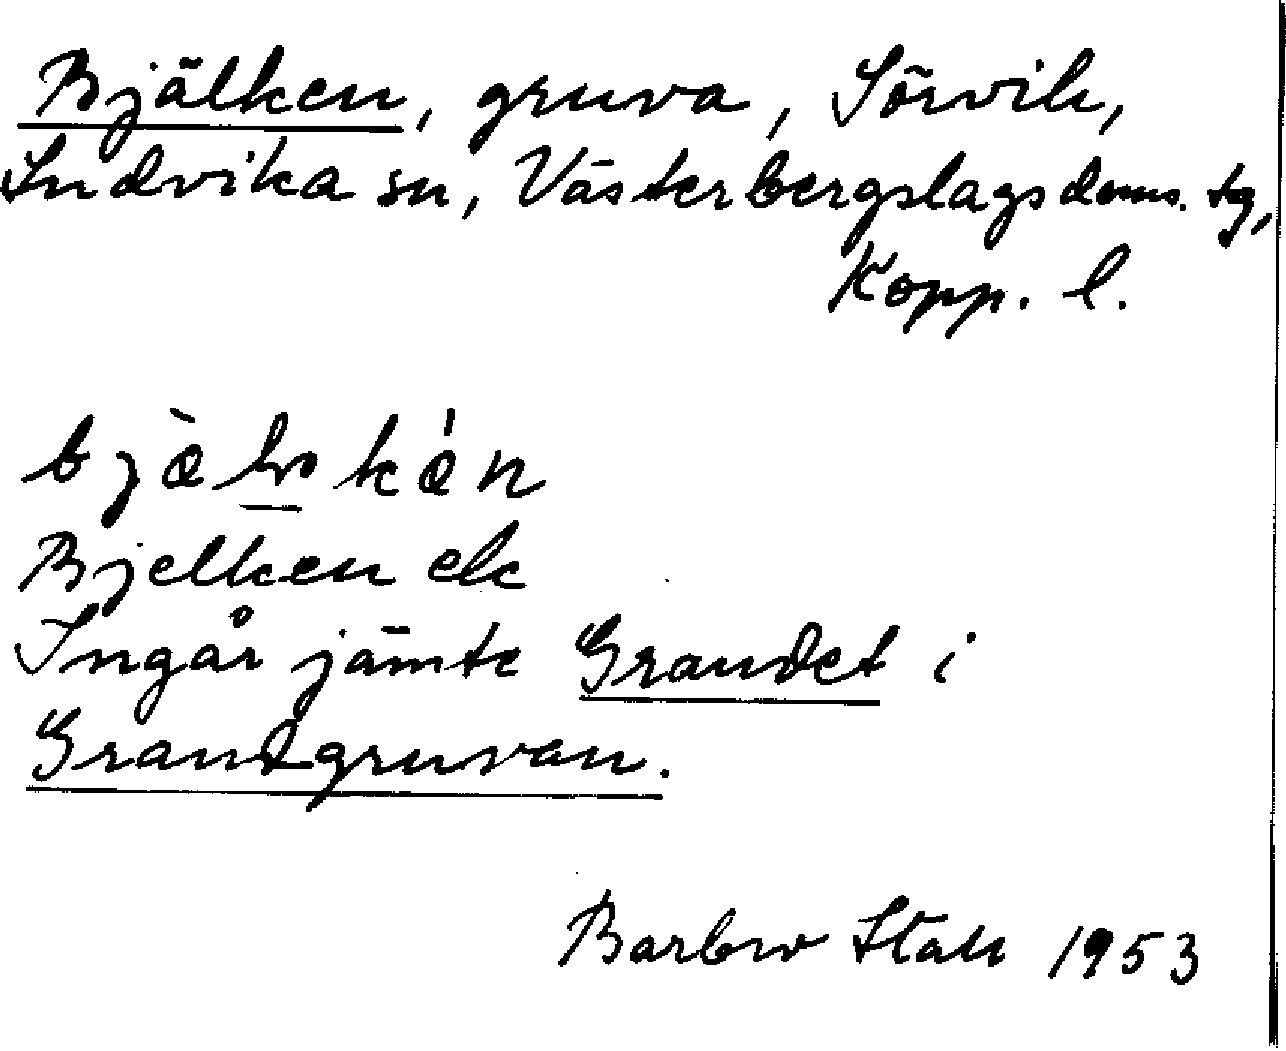 Bjälken, gruva, Sörvik,
Ludvika sn, Västerbergslags doms. tg,
Kopp. l.
Bjelken ek
Ingår jämte Grandet i
Grandgruvan.
Barbro Ståhl 1953